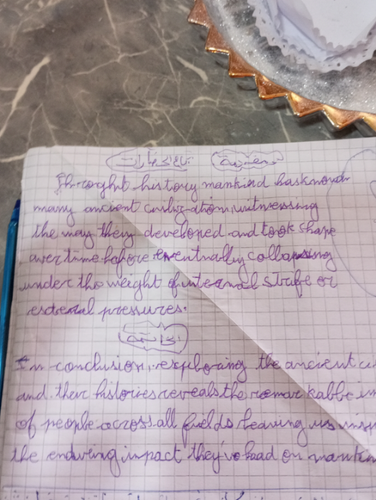 مقدمة
Throught history mankind has known
many ancient civiliz-ation, witnessing
the way they developed and took shape
over time before eventually collapsing
under the weight of internal strife or
external pressures.
الخاتمة
In conclusion, exploring the ancient ci
and their histories reveals the remarkable im
of people across all fields leaving us
the enduring impact they've had on mankin